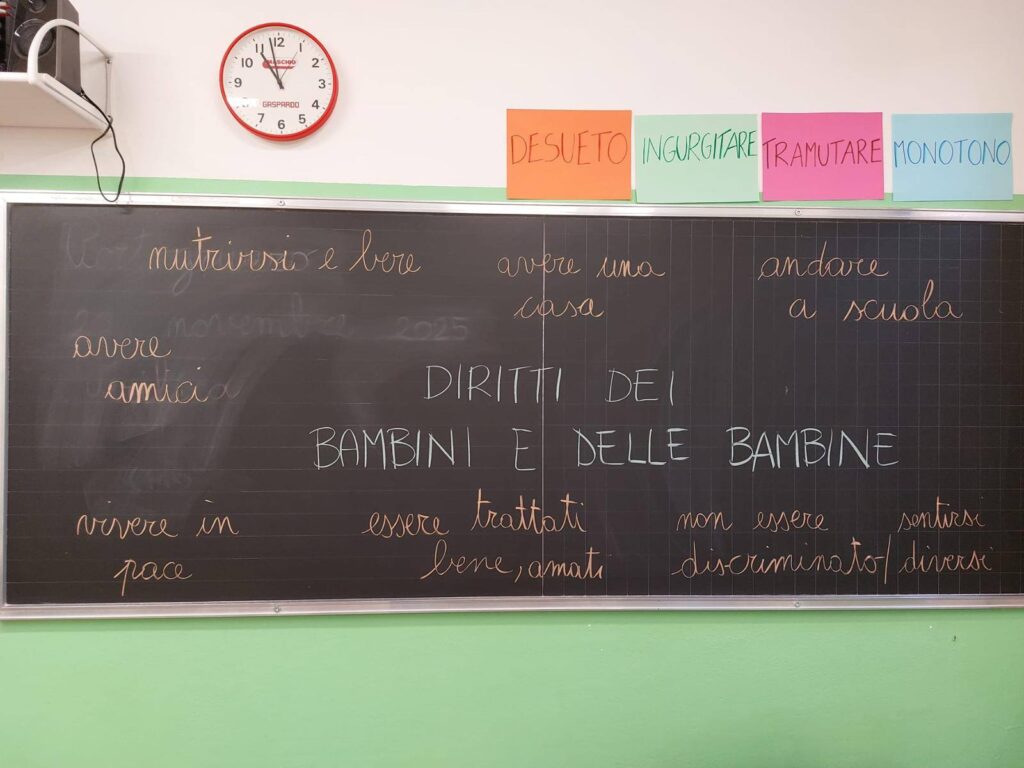 12
1
2
3
4
5
6
7
9
10
11
MASCHIO
GASPARDO
DESUETO
INGURGITARE
TRAMUTARE
MONOTONO
nutrirsi e bere
avere una
casa
andare
a scuola
novembre 2025
avere
amici
DIRITTI DEI
BAMBINI E DELLE BAMBINE
vivere in
pace
essere trattati
bene, amati
non essere
discriminato/
sentirsi
diversi